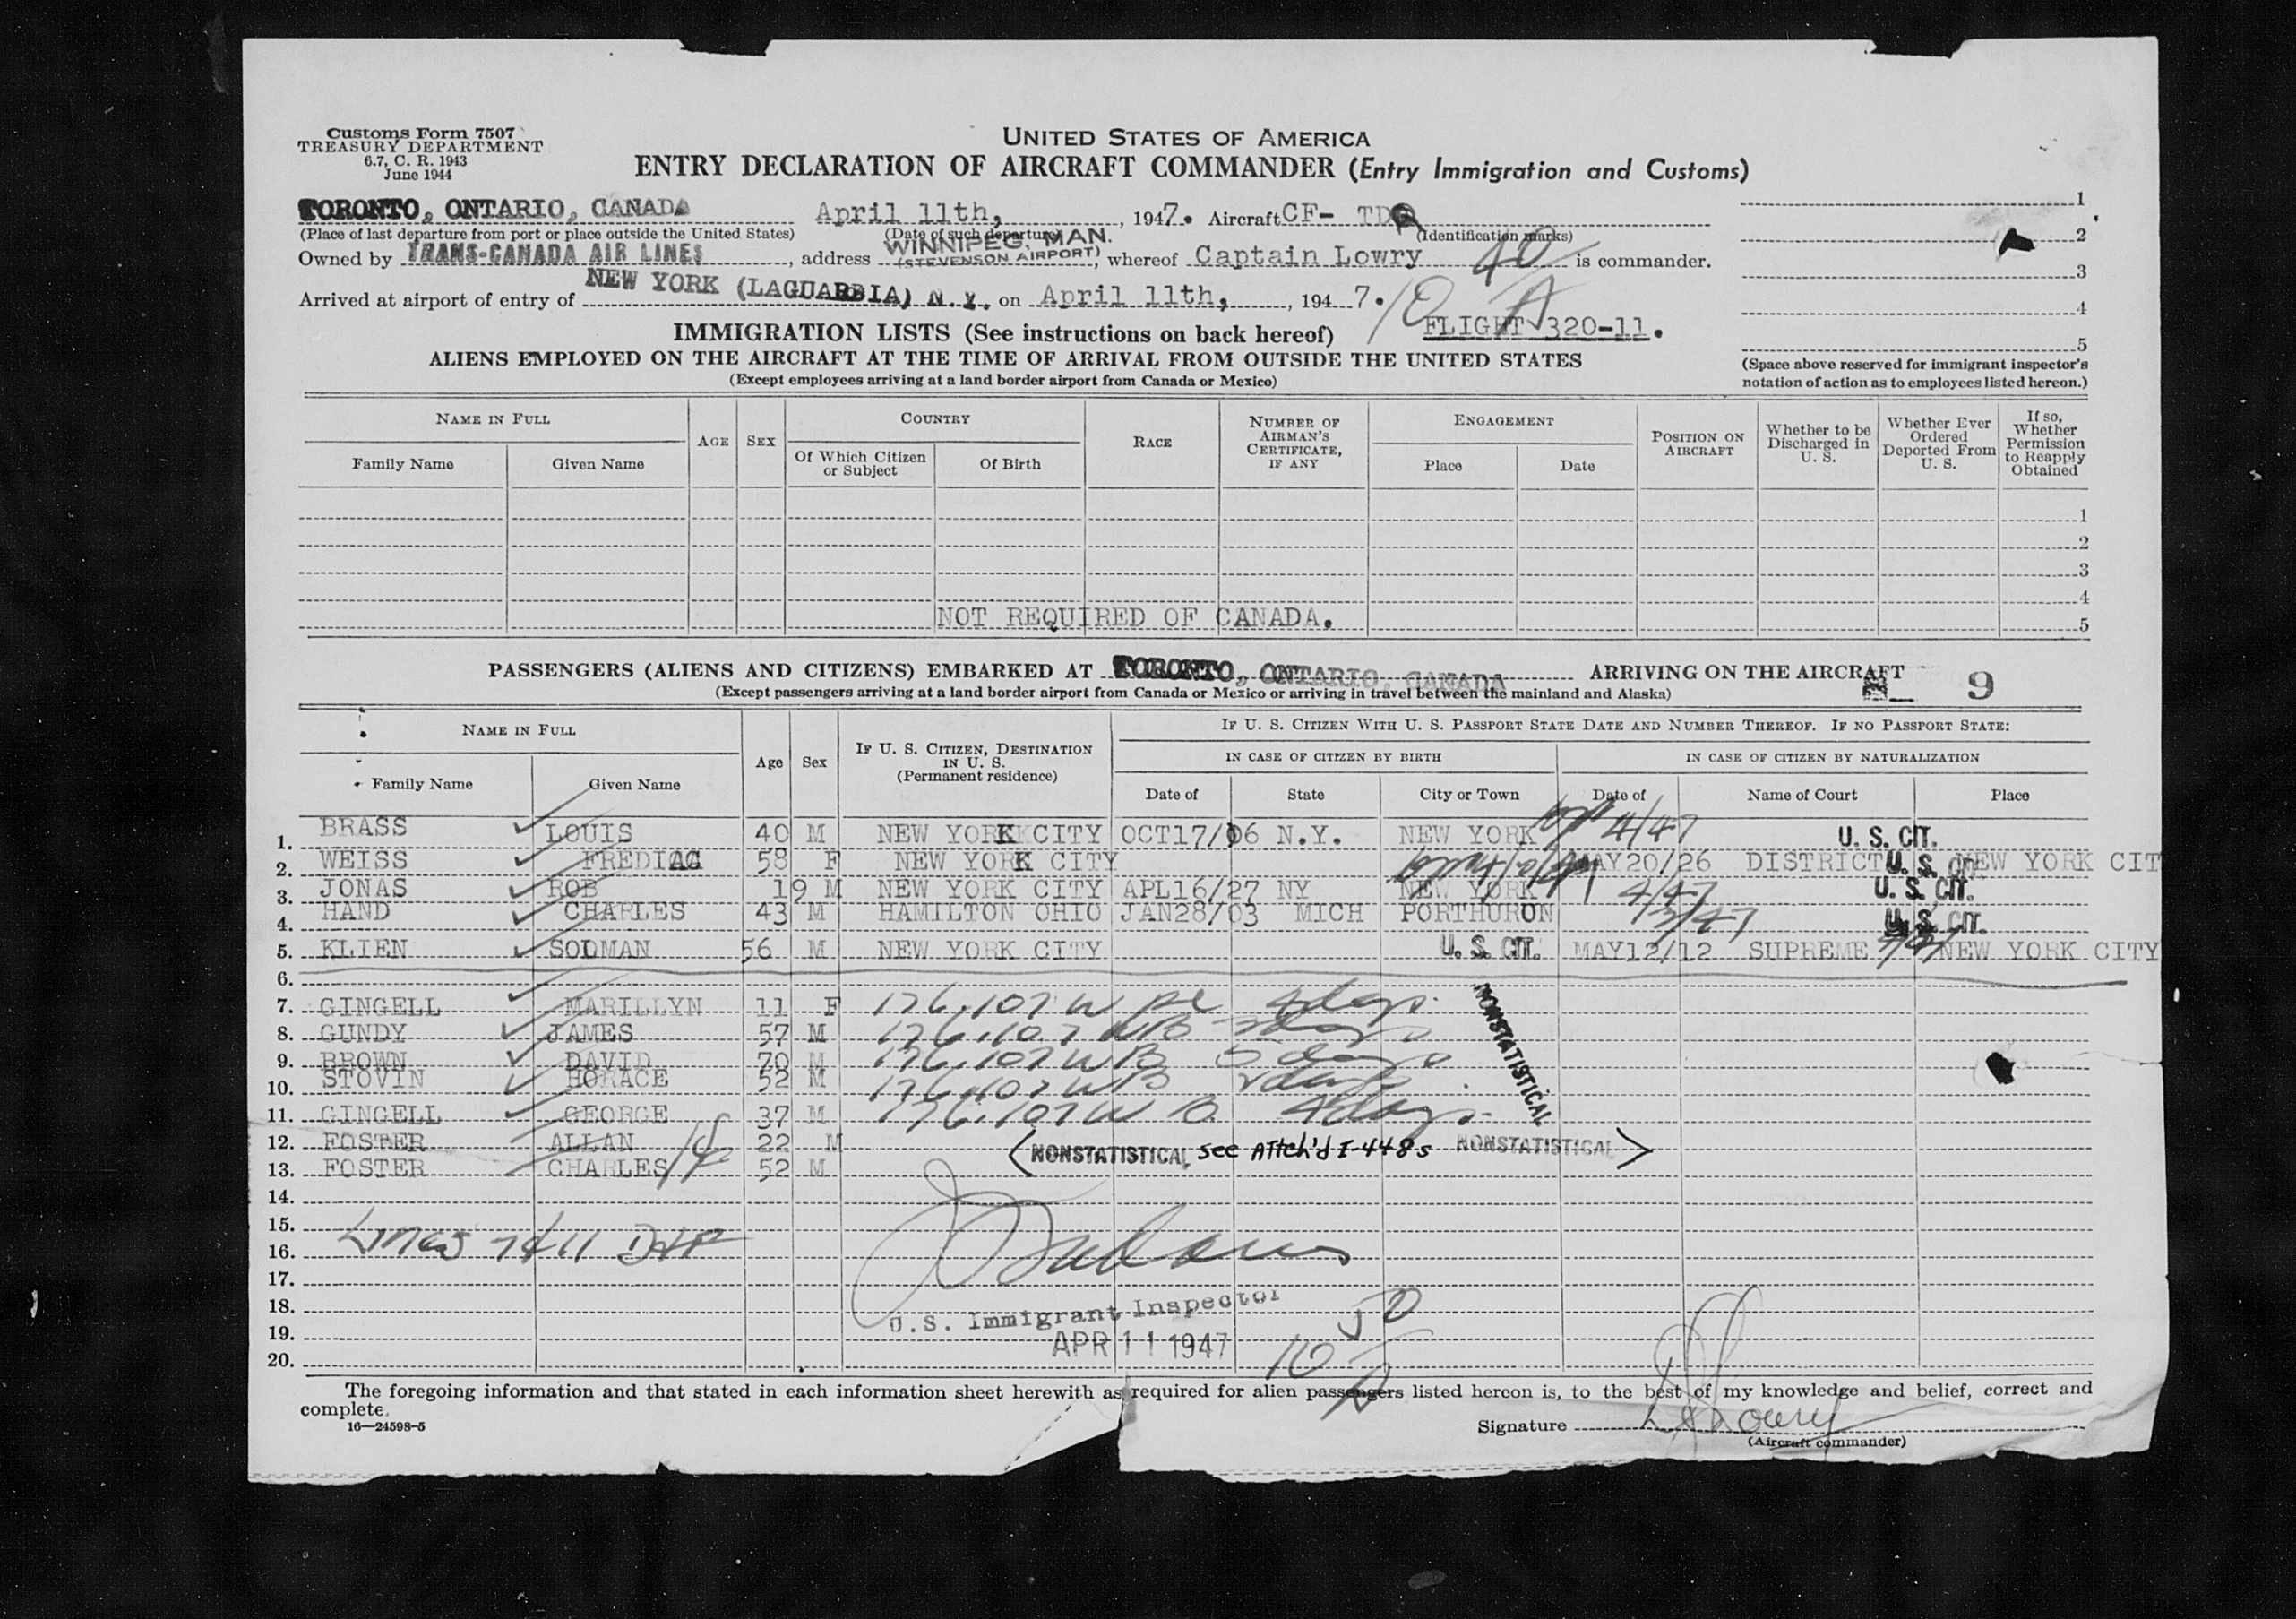 Customs Form 7507
TREASURY DEPARTMENT
6.7, C. R. 1943
June 1944
UNITED STATES OF AMERICA
ENTRY DECLARATION OF AIRCRAFT COMMANDER (Entry Immigration and Customs)
TORONTO, ONTARIO, CANADA April 11th, , 1947. Aircraft CF- TDQ
(Place of last departure from port or place outside the United States) (Date of such departure) (Identification marks)
WINNIPEG, MAN.
(STEVENSON AIRPORT)
Owned by TRANS-CANADA AIR LINES , address , whereof Captain Lowry is commander.
40
Arrived at airport of entry of NEW YORK (LAGUARDIA) N. Y. on April 11th, , 1947.
10 A
FLIGHT 320-11.
1
2
3
4
5
(Space above reserved for immigrant inspector's
notation of action as to employees listed hereon.)
IMMIGRATION LISTS (See instructions on back hereof)
ALIENS EMPLOYED ON THE AIRCRAFT AT THE TIME OF ARRIVAL FROM OUTSIDE THE UNITED STATES
(Except employees arriving at a land border airport from Canada or Mexico)
NAME IN FULL AGE SEX COUNTRY RACE NUMBER OF AIRMAN'S CERTIFICATE, IF ANY ENGAGEMENT POSITION ON AIRCRAFT Whether to be Discharged in U. S. Whether Ever Ordered Deported From U. S. If so, Whether Permission to Reapply Obtained
Family Name Given Name Of Which Citizen or Subject Of Birth Place Date
1
2
3
4
NOT REQUIRED OF CANADA. 5
PASSENGERS (ALIENS AND CITIZENS) EMBARKED AT TORONTO, ONTARIO, CANADA ARRIVING ON THE AIRCRAFT
(Except passengers arriving at a land border airport from Canada or Mexico or arriving in travel between the mainland and Alaska)
9
NAME IN FULL Age Sex IF U. S. CITIZEN, DESTINATION IN U. S. (Permanent residence) IF U. S. CITIZEN WITH U. S. PASSPORT STATE DATE AND NUMBER THEREOF. IF NO PASSPORT STATE:
IN CASE OF CITIZEN BY BIRTH IN CASE OF CITIZEN BY NATURALIZATION
Family Name Given Name Date of State City or Town Date of Name of Court Place
1. BRASS LOUIS 40 M NEW YORK CITY OCT17/06 N.Y. NEW YORK 4/47 U. S. CIT.
2. WEISS 58 F NEW YORK CITY MAY20/26 DISTRICT U. S. CIT. NEW YORK CIT
3. JONAS ROB 19 M NEW YORK CITY APL16/27 NY NEW YORK 4/47 U. S. CIT.
4. HAND CHARLES 43 M HAMILTON OHIO JAN28/03 MICH PORTHURON 3/47 U. S. CIT.
5. KLIEN SOLMAN 56 M NEW YORK CITY U. S. CIT. MAY12/12 SUPREME NEW YORK CITY
6.
7. GINGELL MARILLYN 11 F 176.107 W 4 days
8. GUNDY JAMES 57 M 176.107 WB days
9. BROWN DAVID 70 M 176.107 WB 5 days
10. STOVIN HORACE 52 M 176.107 WB days
11. GINGELL GEORGE 37 M 176.107 W B. 4 days
NONSTATISTICAL
12. FOSTER ALLAN 22 M
(NONSTATISTICAL see Attch'd I-448s NONSTATISTICAL)
13. FOSTER CHARLES 52 M
14.
15.
16.
17.
18.
19.
20.
U.S. Immigrant Inspector
APR 11 1947
10
The foregoing information and that stated in each information sheet herewith as required for alien passengers listed hereon is, to the best of my knowledge and belief, correct and
complete.
16—24598-5
Signature Lowry
(Aircraft commander)